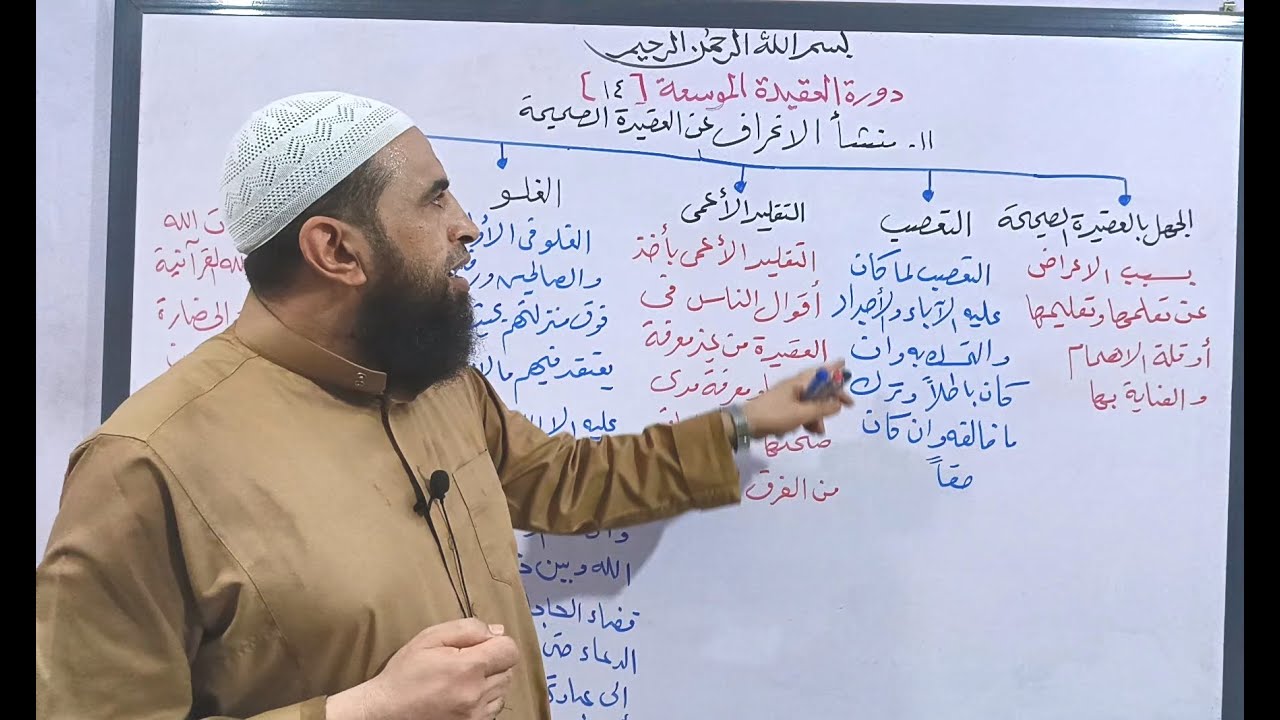 بسم الله الرحمن الرحيم
دورة العقيدة الموسعة [١٤]
١١- منشأ الانحراف عن العقيدة الصحيحة
الجهل بالعقيدة الصحيحة
بسبب الاعراض
عن تعلمها وتعليمها
أو قلة الاهتمام
والعناية بها
التعصب
التعصب لما كان
عليه الآباء والأجداد
والتمسك به وان
كان باطلاً وترك
ما خالفه وان كان
حقاً
التقليد الأعمى
التقليد الأعمى بأخذ
أقوال الناس في
العقيدة من غير معرفة
معرفة مدى
صحتها
من الفرق
الغلو
الغلو في
والصالحين
فوق منزلتهم
يعتقد فيهم
عليه
الله وبين
قضاء
الدعاء
الى
الله
القرآنية
الحضارة